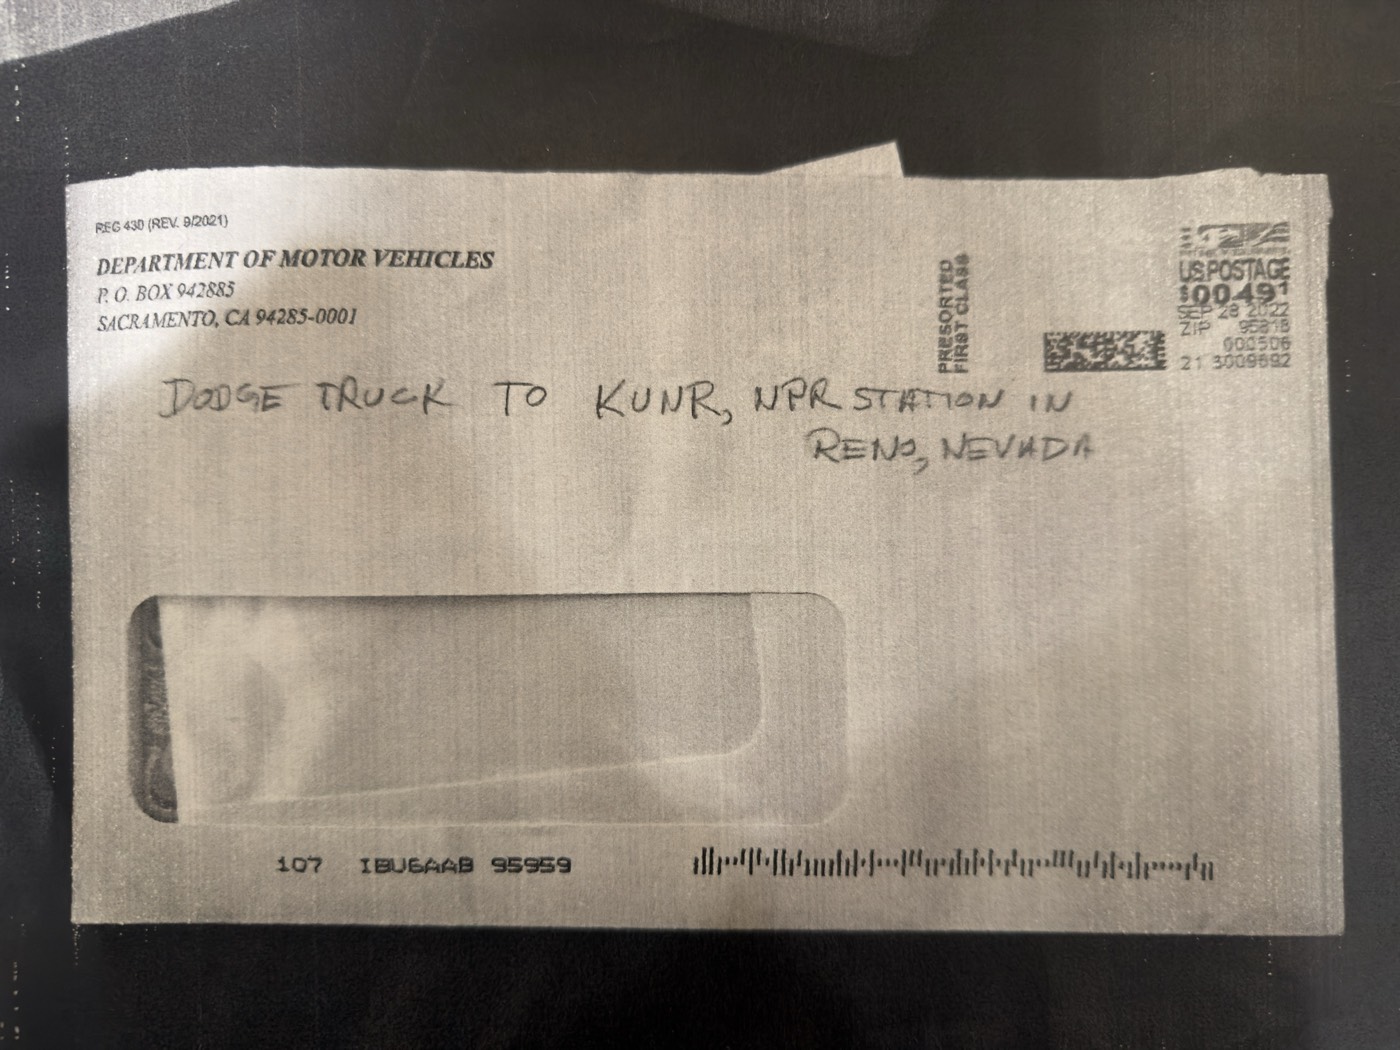 REG 430 (REV. 9/2021)
DEPARTMENT OF MOTOR VEHICLES
P. O. BOX 942885
SACRAMENTO, CA 94285-0001
PRESORTED
FIRST CLASS
US POSTAGE
$00491
SEP 28 2022
ZIP 95818
000506
21 3009692
DODGE TRUCK TO KUNR, NPR STATION IN
RENO, NEVADA
107 IBU6AAB 95959